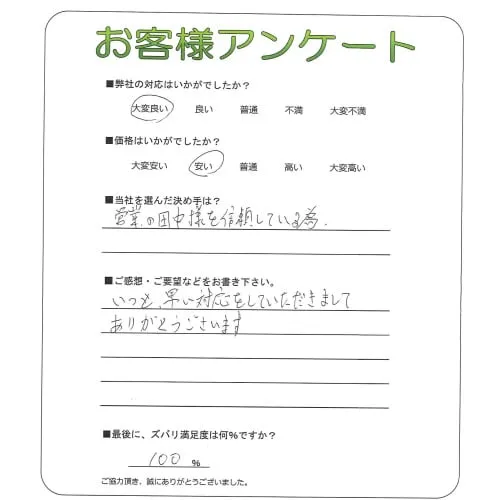 お客様アンケート
■弊社の対応はいかがでしたか？
大変良い 良い 普通 不満 大変不満
■価格はいかがでしたか？
大変安い 安い 普通 高い 大変高い
■当社を選んだ決め手は？
営業の田中様を信頼している為.
■ご感想・ご要望などをお書き下さい。
いつも、早い対応をしていただきまして
ありがとうございます
■最後に、ズバリ満足度は何％ですか？
100 ％
ご協力頂き、誠にありがとうございました。